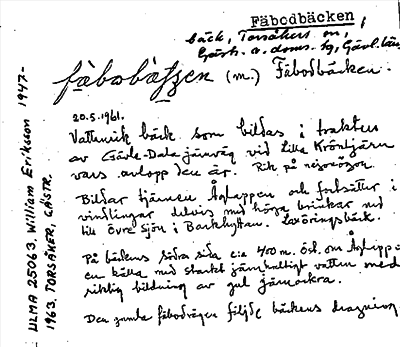 Fäbodbäcken,
bäck, Torsåkers sn,
Gästr. ö. doms. hg, Gävl. län
fäbobäkken (m.) Fäbodbäcken.
20.5.1961.
Vattenrik bäck som bildas i trakten
av Gävle-Dala järnväg vid Lilla Kröntjärn
vars avlopp den är. Rik på nejonögon.
Bildar tjärnen Åghappen och fortsätter i
vindlingar delvis med höga brinkar ned
till övre sjön i Barkhyttan. Laxöringsbäck.
På bäckens södra sida c:a 400 m. öst. om
en källa med starkt järnhaltigt vatten med
riklig bildning av gul järnockra.
Den gamla fäbodvägen följde bäckens dragning
ULMA 25063. William Erikson 1947-
1963. TORSÅKER, GÄSTR.